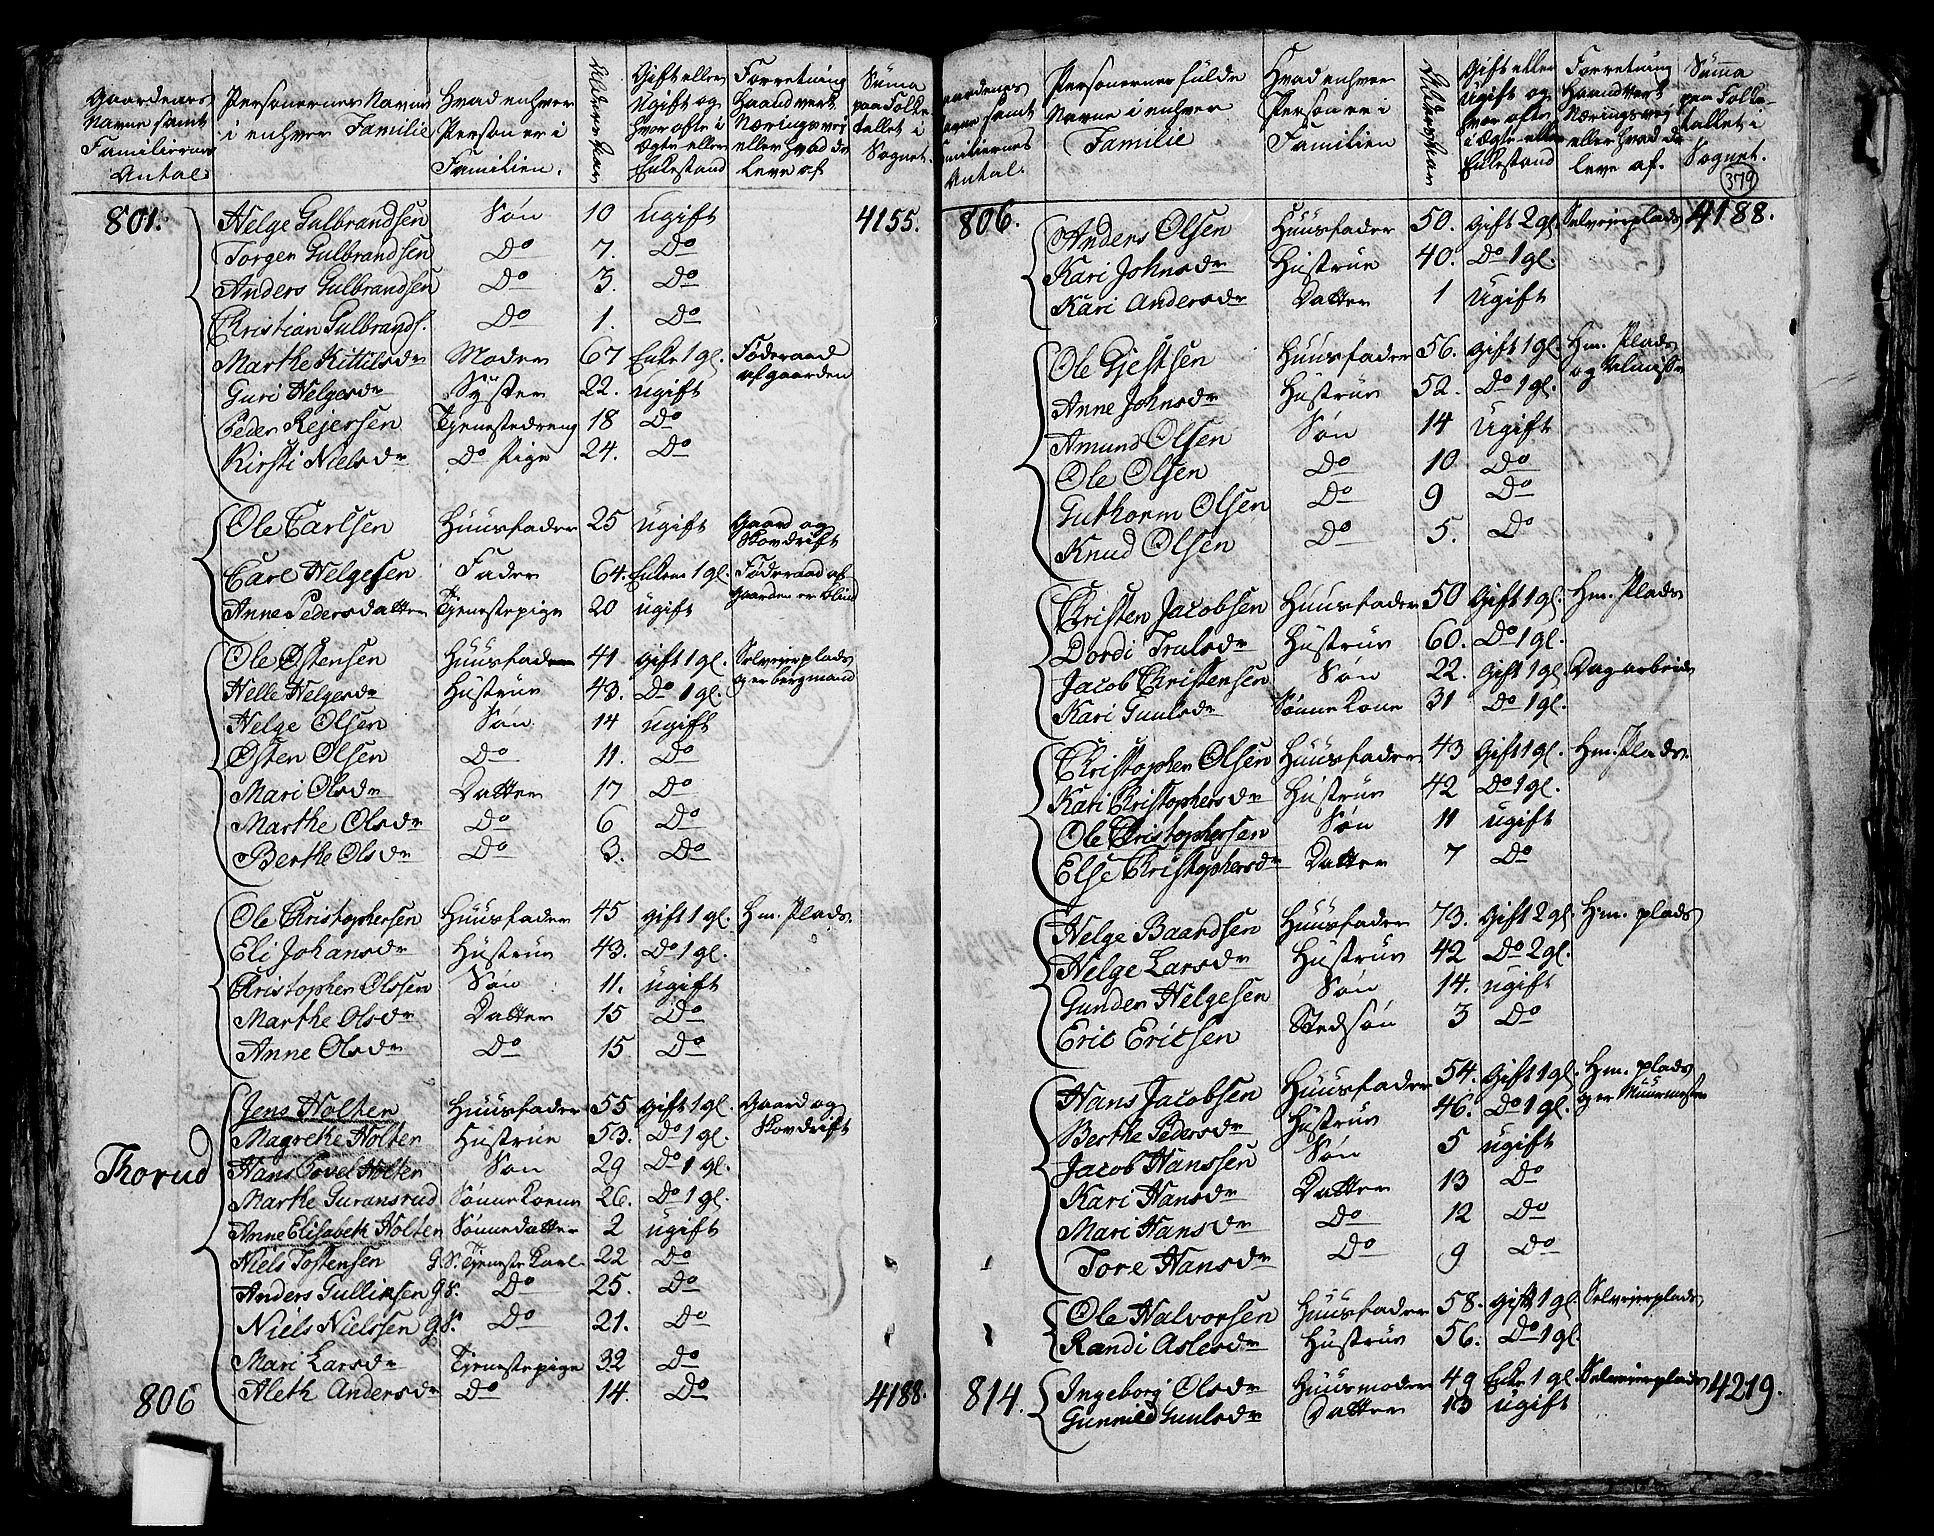 Gaardenes Navne samt Familiernes Antal. | Personernes Navne i enhver Familie | Hvad enhver Person er i Familien. | Alders Aar | Gift eller Ugift og hvor ofte i Ægte eller Enkestand | Forretning Haandverk Næringsvej eller hvad de leve af | Suma paa Folketallet i Sognet.
801. Helge Gulbrandsen Søn 10 ugift 4155.
Torger Gulbrandsen Do 7. Do
Anders Gulbrandsen Do 3. Do
Christian Gulbrands. Do 1. Do
Marthe Kittilsdr Moder 67 Enke 1 gl. Føderaad af gaarden
Guri Helgesdr Syster 22. ugift
Peder Rejersen Tjenestedreng 18 Do
Kirsti Nielsdr Do Pige 24. Do
Ole Carlsen Huusfader 25 ugift Gaard og Skovdrift
Carl Helgesen Fader 64. Enkem 1 gl. Føderaad af Gaarden er blind
Anne Pedersdatter Tjenestepige 20 ugift
Ole Østensen Huusfader 41. gift 1 gl. Selvejerplads og er bergmand
Helle Helgesdr Hustrue 43. Do 1 gl.
Helge Olsen Søn 14 ugift
Østen Olsen Do 11. Do
Mari Olsdr Datter 17 Do
Marthe Olsdr Do 6 Do
Berthe Olsdr Do 3. Do
Ole Christophersen Huusfader 45 gift 1 gl. Hm. Plads
Eli Johansdr Hustrue 43. Do 1 gl.
Christopher Olssen Søn 11. ugift
Marthe Olsdr Datter 15 Do
Anne Olsdr Do 15 Do
Jens Holten Huusfader 55 gift 1 gl. Gaard og Skovdrift
Magrethe Holten Hustrue 53. Do 1 gl.
Thorud Hans Povel Holten Søn 29 Do 1 gl.
Marthe Guransrud Sønnekone 26. Do 1 gl.
Anne Elisabeth Holten Sønnedatter 2 ugift
Niels Tostensen G.S. Tjenestekarl 22 Do
Anders Gullinsen g.S. Do 25. Do
Niels Nielssen g.S. Do 21. Do
Mari Larsdr Tjenestepige 32 Do
806 Aleth Andersdr Do 14. Do 4188.
Gaardenes Navne samt Familiernes Antal. | Personernes fulde Navne i enhver Familie | Hvad enhver Person er i Familien | Alders Aar | Gift eller Ugift og hvor ofte i Ægte eller Enkestand | Forretning Haandverk Næringsvej eller hvad de leve af. | Summa paa Folketallet i Sognet.
379
806. Anders Olsen Huusfader 50. Gift 2 gl. Selvejerplads 4188.
Kari Johnsdr Hustrue 40. Do 1 gl.
Kari Andersdr Datter 1 Ugift
Ole Gjestsen Huusfader 56. gift 1 gl. Hm. Plads og
Anne Johnsdr Hustrue 52. Do 1 gl.
Amund Olsen Søn 14 Ugift
Ole Olsen Do 10. Do
Guthorm Olsen Do 9 Do
Knud Olsen Do 5. Do
Christen Jacobsen Huusfader 50 Gift 1 gl. Hm. Plads
Dordi Trulsdr Hustrue 60. Do 1 gl.
Jacob Christensen Søn 22. Gift 1 gl. Dagarbeide
Kari Guulsdr Sønnekone 31 Do 1 gl.
Christopher Olsen Huusfader 43 Gift 1 gl. Hm. Plads
Kari Christophersdr Hustrue 42 Do 1 gl.
Ole Christophersen Søn 11 ugift
Else Christophersdr Datter 7 Do
Helge Baardsen Huusfader 73. Gift 2 gl. Hm. plads
Helge Larsdr Hustrue 42 Do 2 gl.
Gunder Helgesen Søn 14. ugift
Eric Ericsen Stedsøn 3 Do
Hans Jacobsen Huusfader 54. Gift 1 gl. Hm. plads og er Muurmester
Berthe Pedersdr Hustrue 46. Do 1 gl.
Jacob Hanssen Søn 5 ugift
Kari Hansdr Datter 13 Do
Mari Hansdr Do 12 Do
Tore Hansdr Do 9 Do
Ole Halvorsen Huusfader 58. gift 1 gl. Selvejerplads
Randi Aslesdr Hustrue 56. Do 1 gl.
814. Ingeborg Olsdr Huusmoder 49 Enke 1 gl. Selvejerplads 4219.
Gunnild Guulsdr Datter 13 ugift